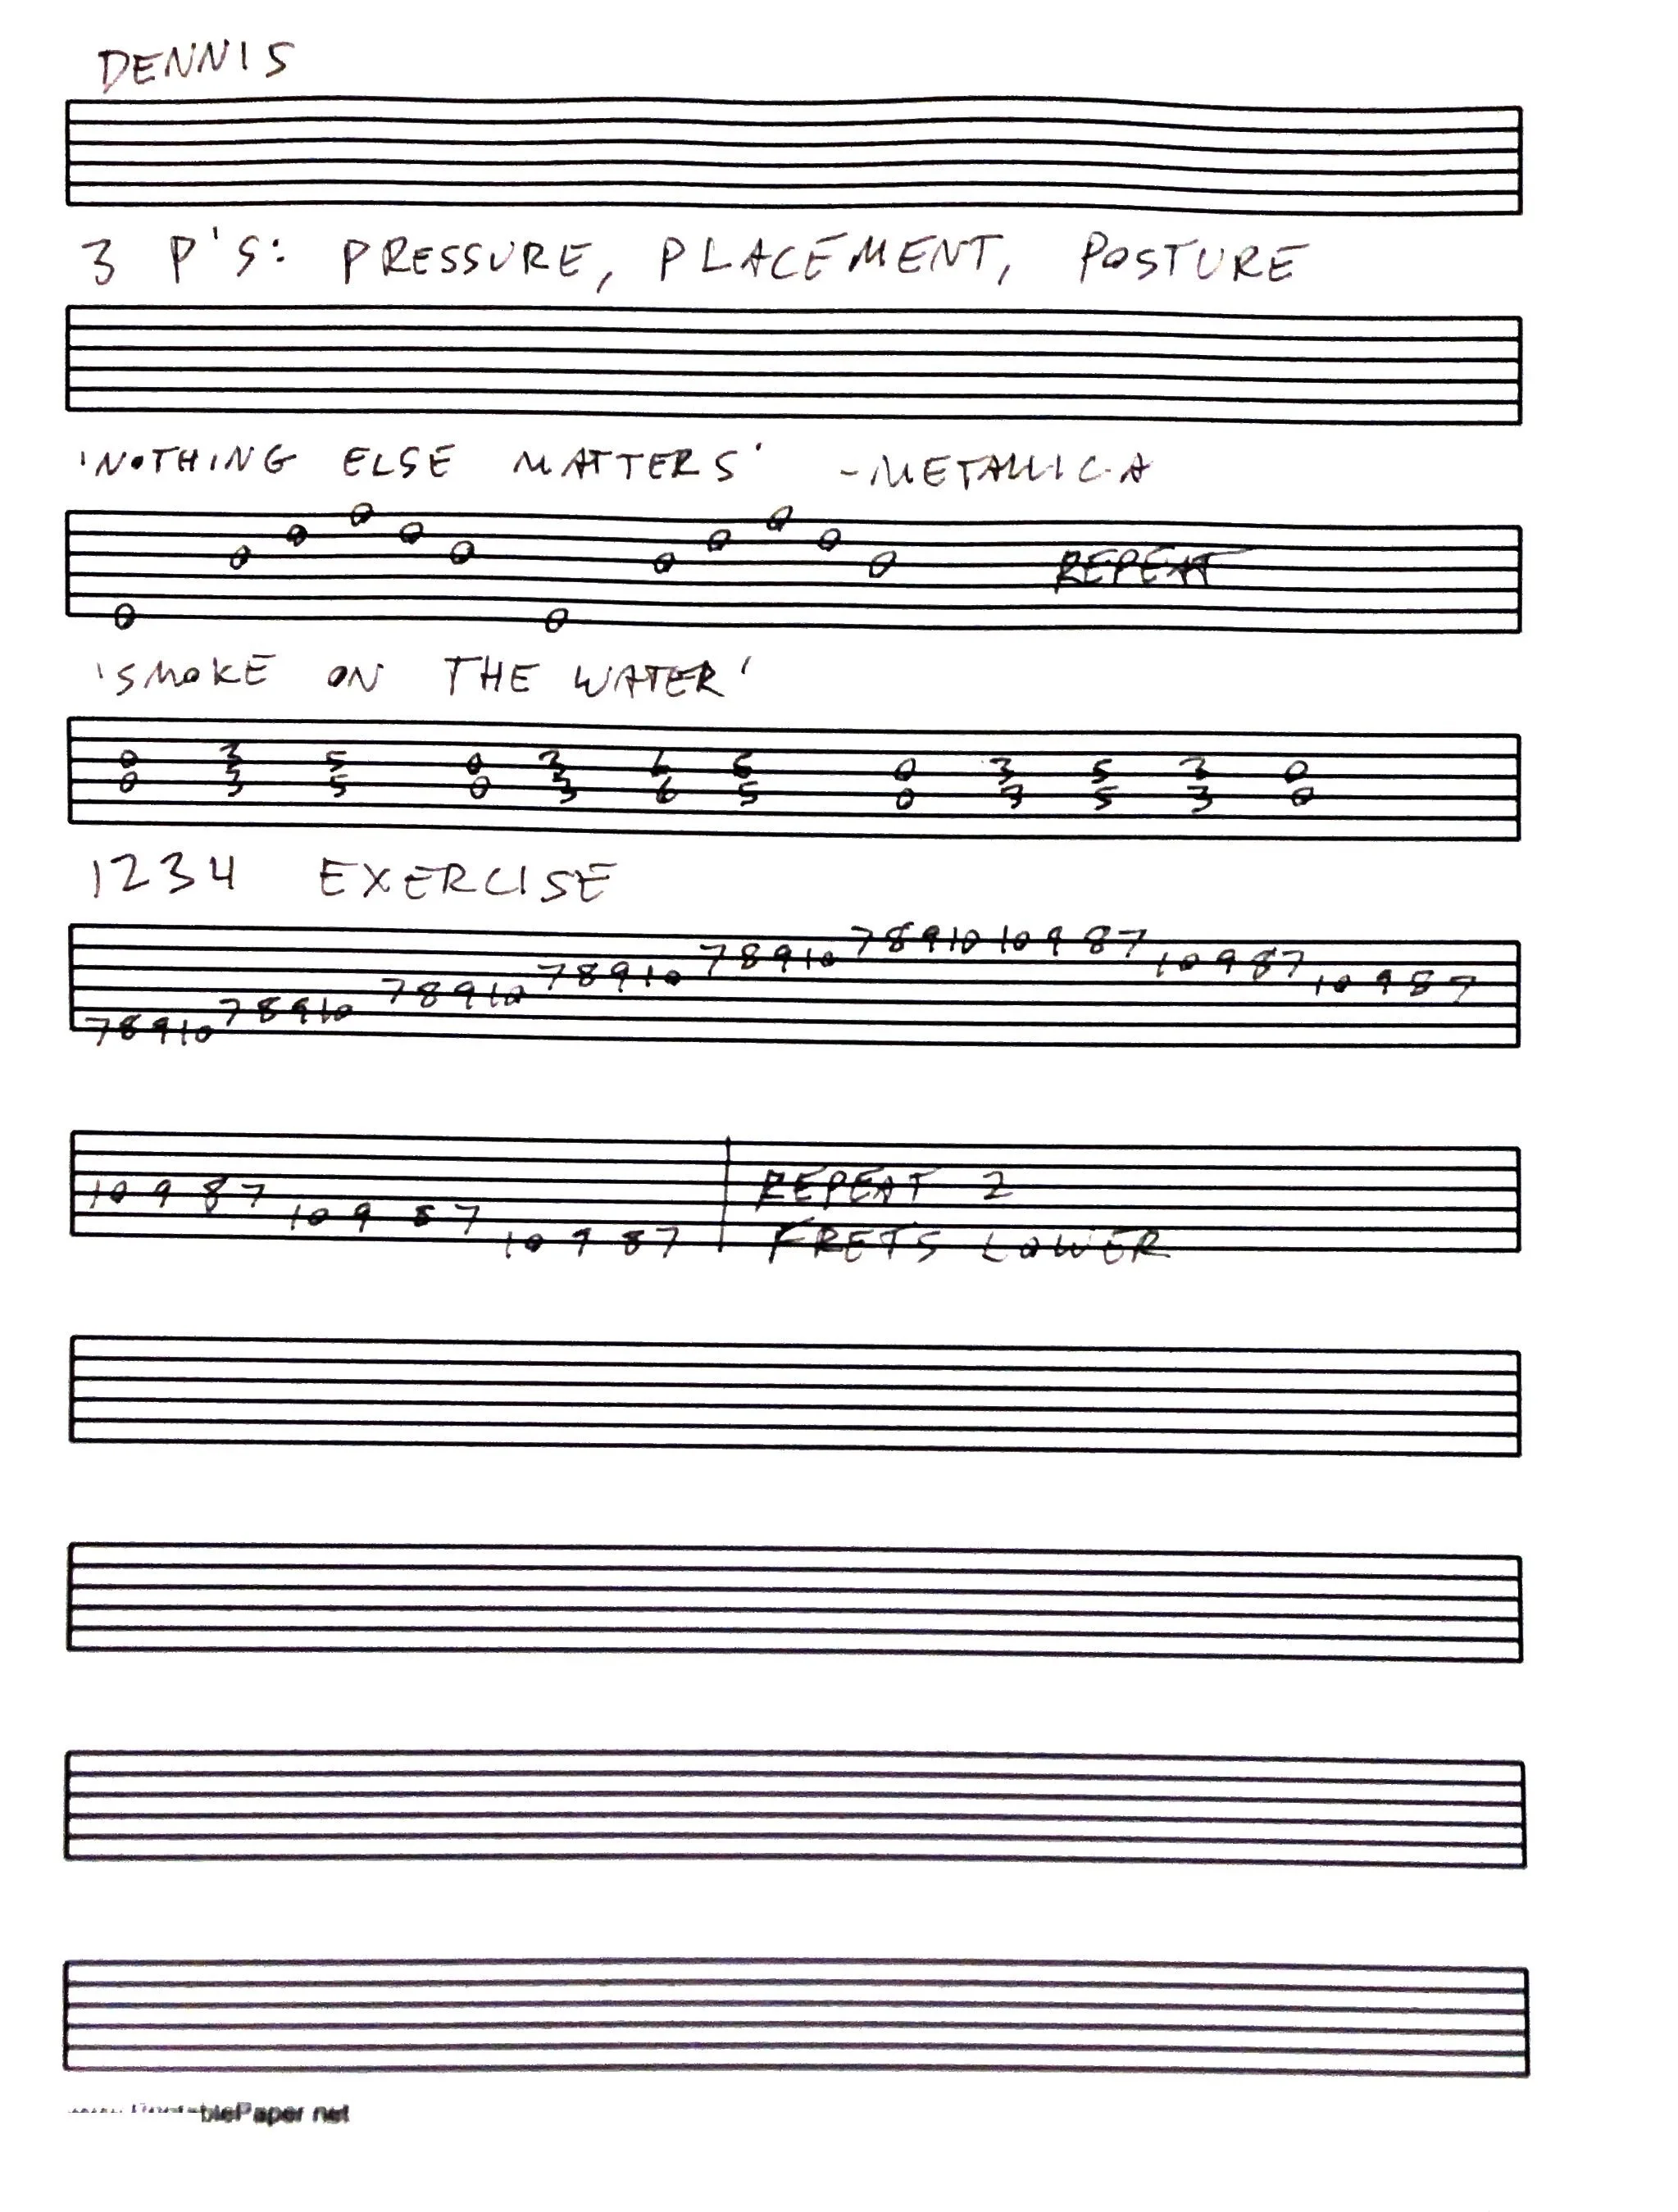 DENNIS
3 P'S: PRESSURE, PLACEMENT, POSTURE
'NOTHING ELSE MATTERS' - METALLICA
0 0 0 0 0 0 0 0 0 0 0 0 REPEAT
'SMOKE ON THE WATER'
0 3 5 0 3 6 5 0 3 5 3 0
0 3 5 0 3 6 5 0 3 5 3 0
1234 EXERCISE
7 8 9 10 7 8 9 10 7 8 9 10 7 8 9 10 7 8 9 10 7 8 9 10 10 9 8 7 10 9 8 7 10 9 8 7
10 9 8 7 10 9 8 7 10 9 8 7 REPEAT 2
FRETS LOWER